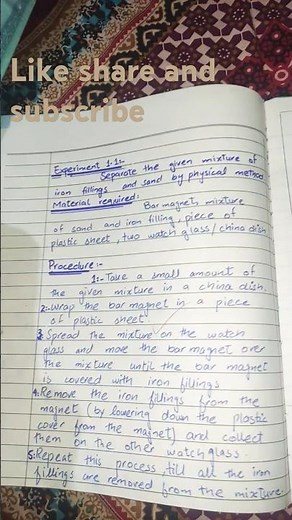 Like share and
subscribe
Experiment 1.1:-
Separate the given mixture of
iron fillings and sand by physical method
Material required:
Bar magnet, mixture
of sand and iron filling, piece of
plastic sheet, two watch glass/china dish
Procedure:-
1:- Take a small amount of
the given mixture in a china dish.
2:- Wrap the bar magnet in a piece
of plastic sheet
3. Spread the mixture on the watch
glass and move the bar magnet over
the mixture until the bar magnet
is covered with iron fillings
4. Remove the iron fillings from the
magnet (by lowering down the plastic
cover from the magnet) and collect
them on the other watch glass.
5: Repeat this process till all the iron
fillings are removed from the mixture